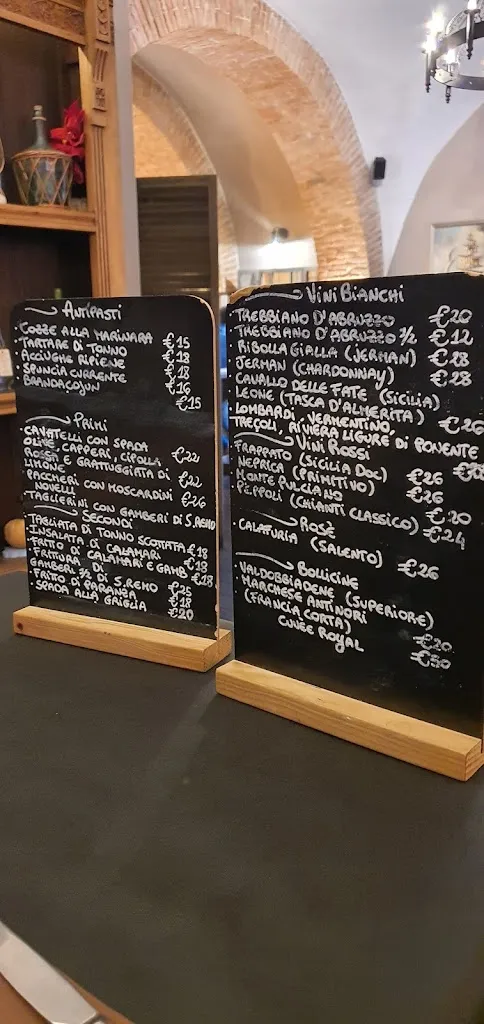 Antipasti
· COZZE ALLA MARINARA €15
· TARTARE DI TONNO €18
· ACCIUGHE RIPIENE €18
· SPUNCIA CURRENTE €16
· BRANDACOJUN €15
PRIMI
CAVATELLI CON SPADA
OLIVE, CAPPERI, CIPOLLA
ROSSA E GRATTUGGIATA DI €22
LIMONE €22
· PACCHERI CON MOSCARDINI
NOVELLI €26
· TAGLIERINI CON GAMBERI DI S.REMO
SECONDI
· TAGLIATA DI TONNO SCOTTATA €18
· INSALATA DI CALAMARI €18
· FRITTO DI CALAMARI
· FRITTURA DI CALAMARI E GAMB. €18
GAMBERI 1/2 DI S.REMO €25
· FRITTO DI PARANZA €18
· SPADA ALLA GRIGLIA €20
VINI BIANCHI
TREBBIANO D'ABRUZZO €20
· TREBBIANO D'ABRUZZO 1/2 €12
· RIBOLLA GIALLA (JERMAN) €28
· JERMAN (CHARDONNAY) €28
· CAVALLO DELLE FATE (SICILIA)
LEONE (TASCA D'ALMERITA) €26
LOMBARDI, VERMENTINO,
TREÇOLI, RIVIERA LIGURE DI PONENTE
VINI ROSSI
· FRAPPATO (SICILIA DOC) €26
· NEPRICA (PRIMITIVO) €26
· MONTEPULCIANO €20
· PÈPPOLI (CHIANTI CLASSICO) €24
ROSÈ
· CALAFURIA (SALENTO) €26
BOLLICINE
· VALDOBBIADENE (SUPERIORE) €20
· MARCHESE ANTINORI
(FRANCIA CORTA) €50
CUVÈE ROYAL